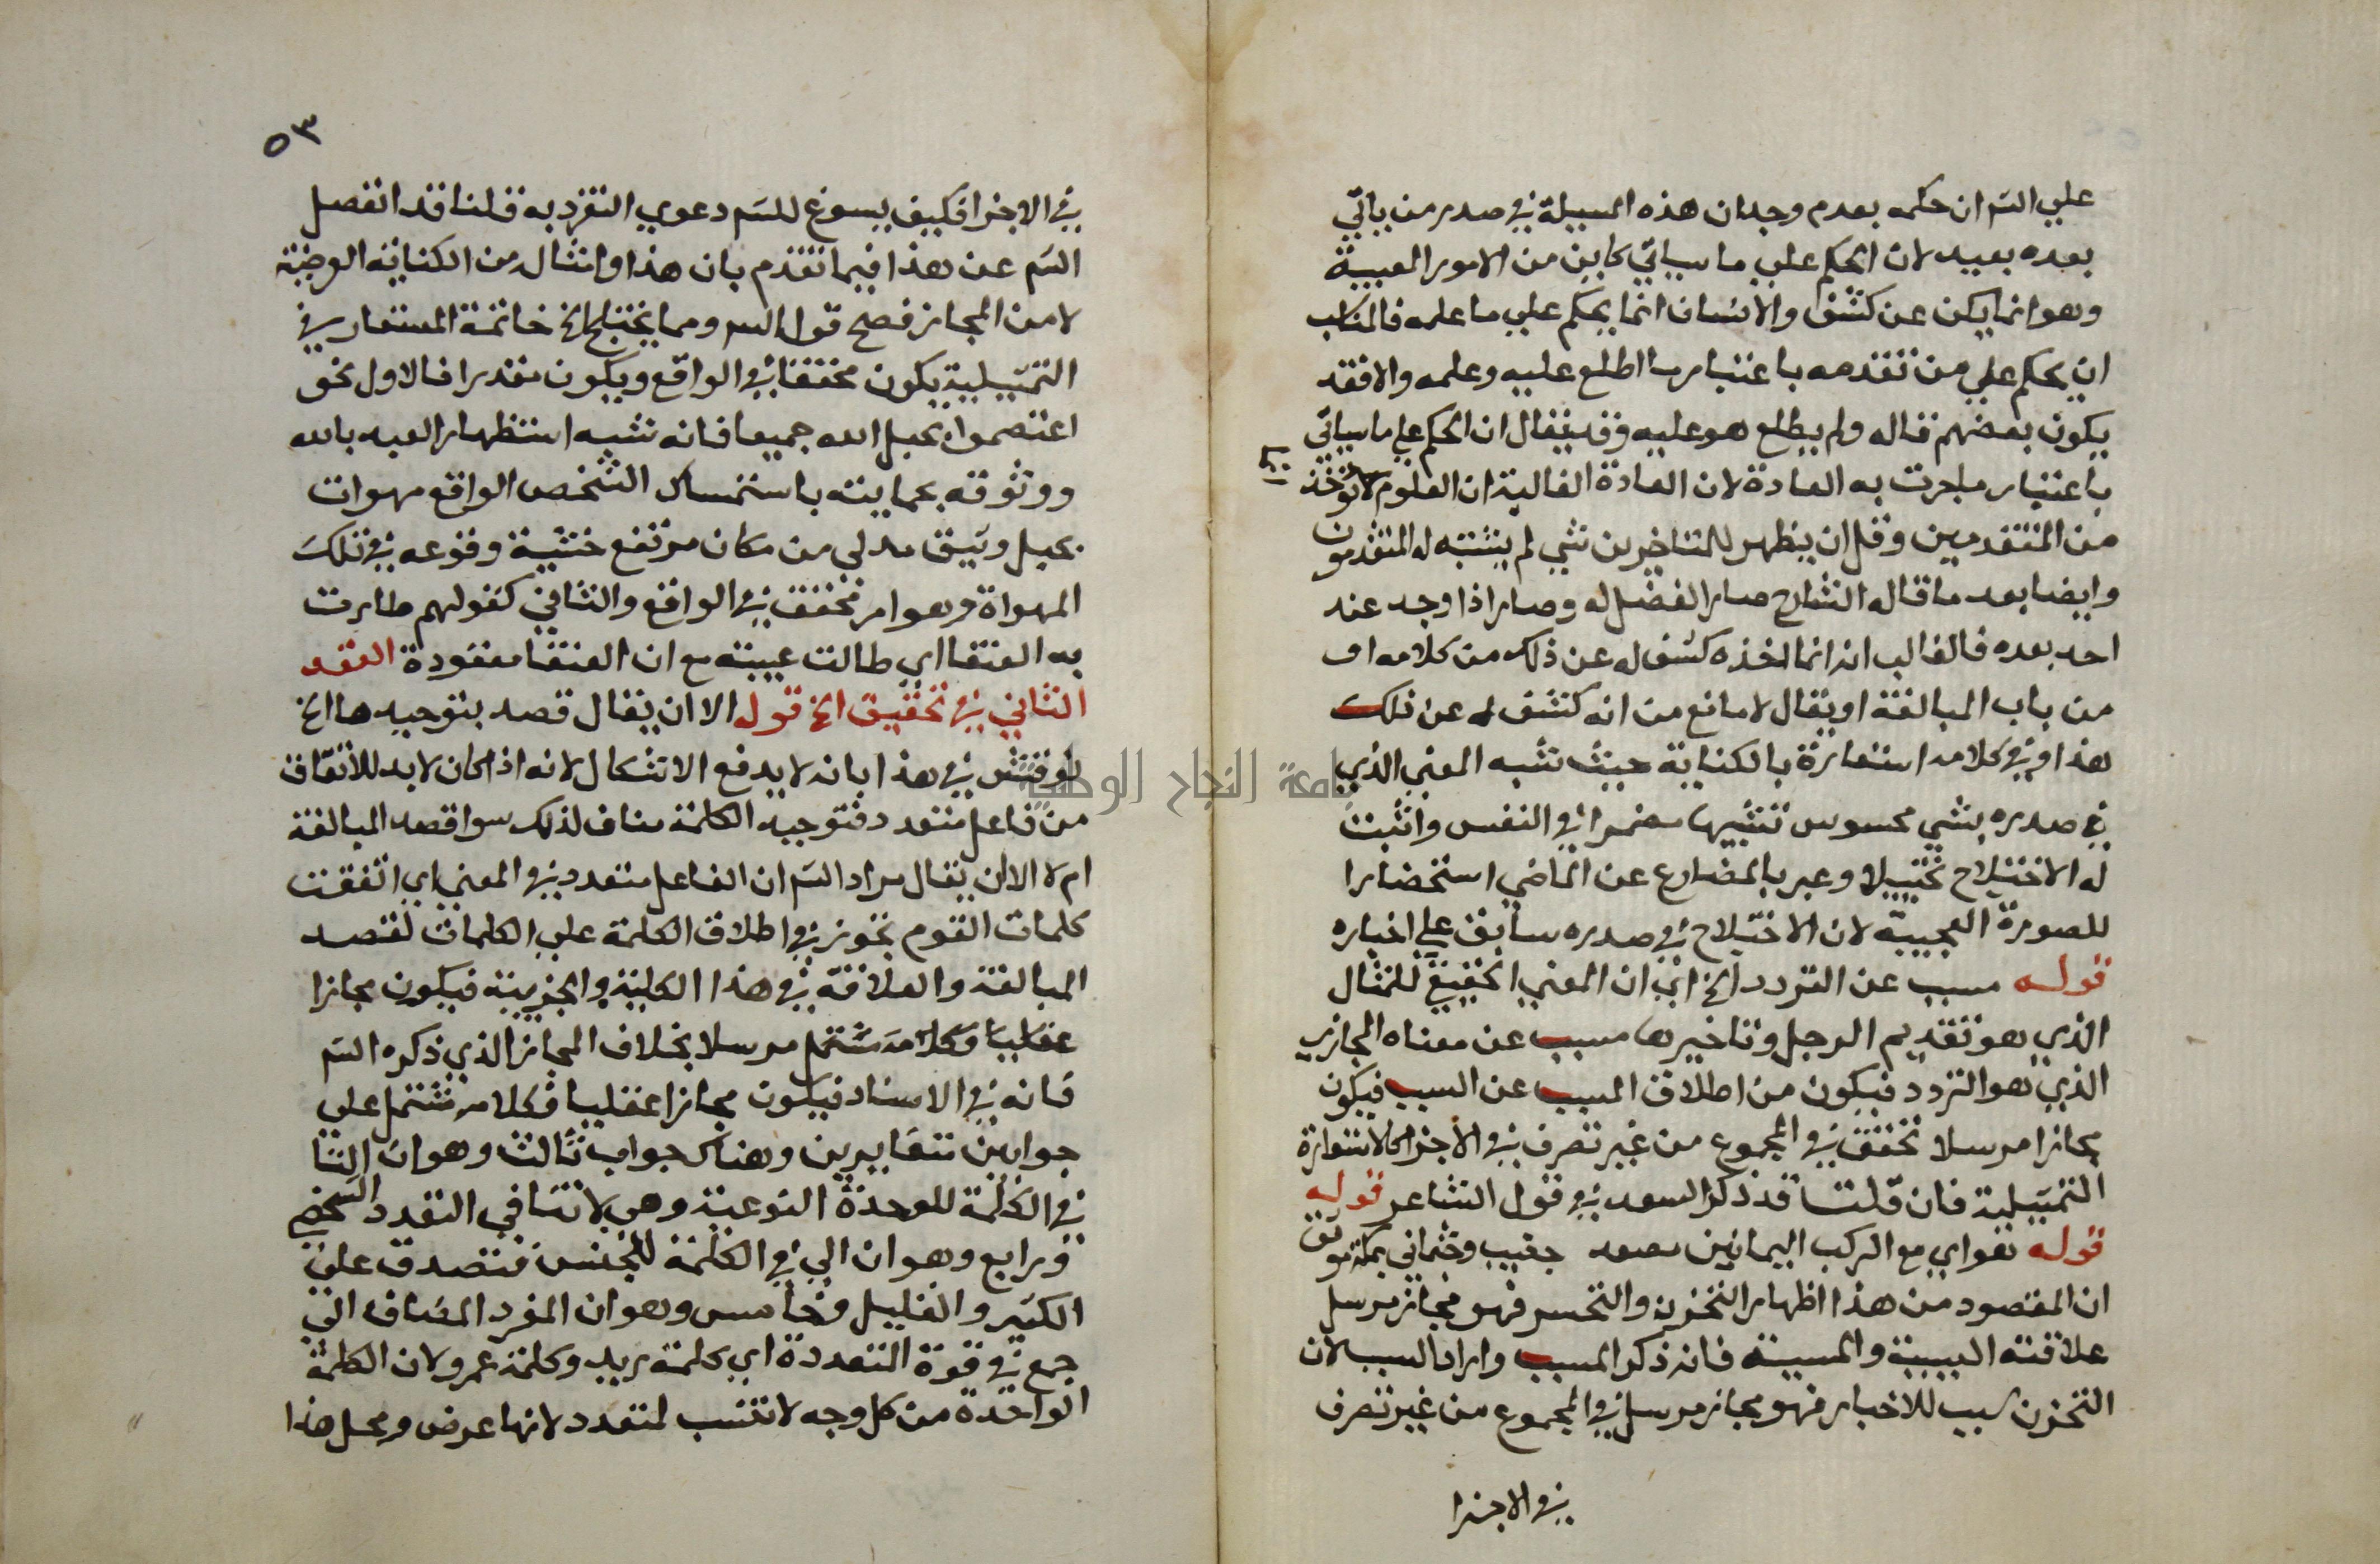 علي الش ان حكمه بعدم وجدان هذه المسيلة في صدر من ياتي
بعده بعيد لان الحكم علي ما سياتي كاين من الامور الغيبية
وهو انما يكن عن كشف والانسان انما يحكم علي ما علمه فالمناسب
ان يحكم علي من تقدمه باعتبار ما اطلع عليه وعلمه والا فقد
يكون بعضهم قاله ولم يطلع هو عليه وقد يقال ان الحكم علي ما سياتي
باعتبار ما جرت به العادة لان العادة الغالبة ان العلوم لا توخذ
من المتقدمين وقل ان يظهر للمتاخرين شي لم يتنبه له المتقدمون
وايضا بعد ما قاله الشارح صار الفضل له وصار اذا وجد عند
احد بعده فالغالب انه انما اخذه كشف له عن ذلك من كلامه او
من باب المبالغة او يقال لا مانع من انه كشف له عن ذلك
هذا وفي كلامه استعارة بالكناية حيث شبه المعني الذي
في صدره بشي محسوس تشبيها مضمرا في النفس واثبت
له الاختلاج تخييلا وعبر بالمضارع عن الماضي استحضارا
للصورة العجيبة لان الاختلاج في صدره سابق علي اخباره
قوله مسبب عن التردد الخ اي ان المعني الحقيقي للمثال
الذي هو تقديم الرجل وتاخيرها مسبب عن معناه المجازي
الذي هو التردد فيكون من اطلاق المسبب عن السبب فيكون
مجازا مرسلا تحقق في المجموع من غير تصرف في الاجزا كالاستعارة
التمثيلية فان قلت قد ذكر السعد في قول الشاعر قوله
قوله هواي مع الركب اليمانين مصعد جنيب وجثماني بمكة موثق
ان المقصود من هذا اظهار التحزن والتحسر فهو مجاز مرسل
علاقته السببية والمسببية فانه ذكر المسبب واراد السبب لان
التحزن سبب للاخبار فهو مجاز مرسل في المجموع من غير تصرف
في الاجزا
٥٣
في الاجزا فكيف يسوغ للش دعوي التفرد به قلنا قد انفصل
الش عن هذا فيما تقدم بان هذا وامثاله من الكناية العرضية
لا من المجاز فصح قول الش ومما يختلج الخ خاتمة المستعار في
التمثيلية يكون محققا في الواقع ويكون مقدرا فالاول نحو
اعتصموا بحبل الله جميعا فانه شبه استظهار العبد بالله
ووثوقه بحمايته باستمساك الشخص الواقع مهوات
بحبل وثيق مدلي من مكان مرتفع خشية وقوعه في تلك
المهواة وهو امر محقق في الواقع والثاني كقولهم طارت
به العنقا اي طالت غيبته مع ان العنقا مفقودة العقد
الثاني في تحقيق الخ قوله الا ان يقال قصد بتوحيدها الخ
نوقش في هذا بانه لا يدفع الاشكال لانه اذا كان لابد للاتفاق
من فاعل متعدد فتوحيد الكلمة مناف لذلك سوا قصد المبالغة
ام لا الا ان يقال مراد الش ان الفاعل متعدد في المعني اي اتفقت
كلمات القوم تجوز في اطلاق الكلمة علي الكلمات لقصد
المبالغة والعلاقة في هذا الكلية والجزيية فيكون مجازا
عقليا وكلامه مشتمل مرسلا بخلاف المجاز الذي ذكره الش
فانه في الاسناد فيكون مجازا عقليا وكلامه مشتمل علي
جوابين متغايرين وهناك جواب ثالث وهو ان التا
في الكلمة للوحدة النوعية وهي لا تنافي التعدد الشخصي
ورابع وهو ان الي في الكلمة للجنس فتصدق علي
الكثير والقليل وخامس وهو ان المفرد المضاف الي
جمع في قوة المتعددة اي كلمة زيد وكلمة عمرو لان الكلمة
الواحدة من كل وجه لا تنسب لمتعدد لانها عرض ومحل هذا
جامعة النجاح الوطنية